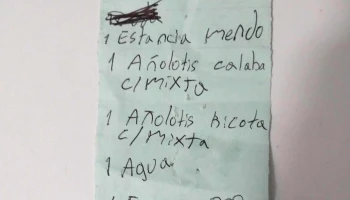 1 Estancia mendo
1 Añolotis calaba
c/mixta
1 Añolotis Ricota
c/mixta
1 Agua